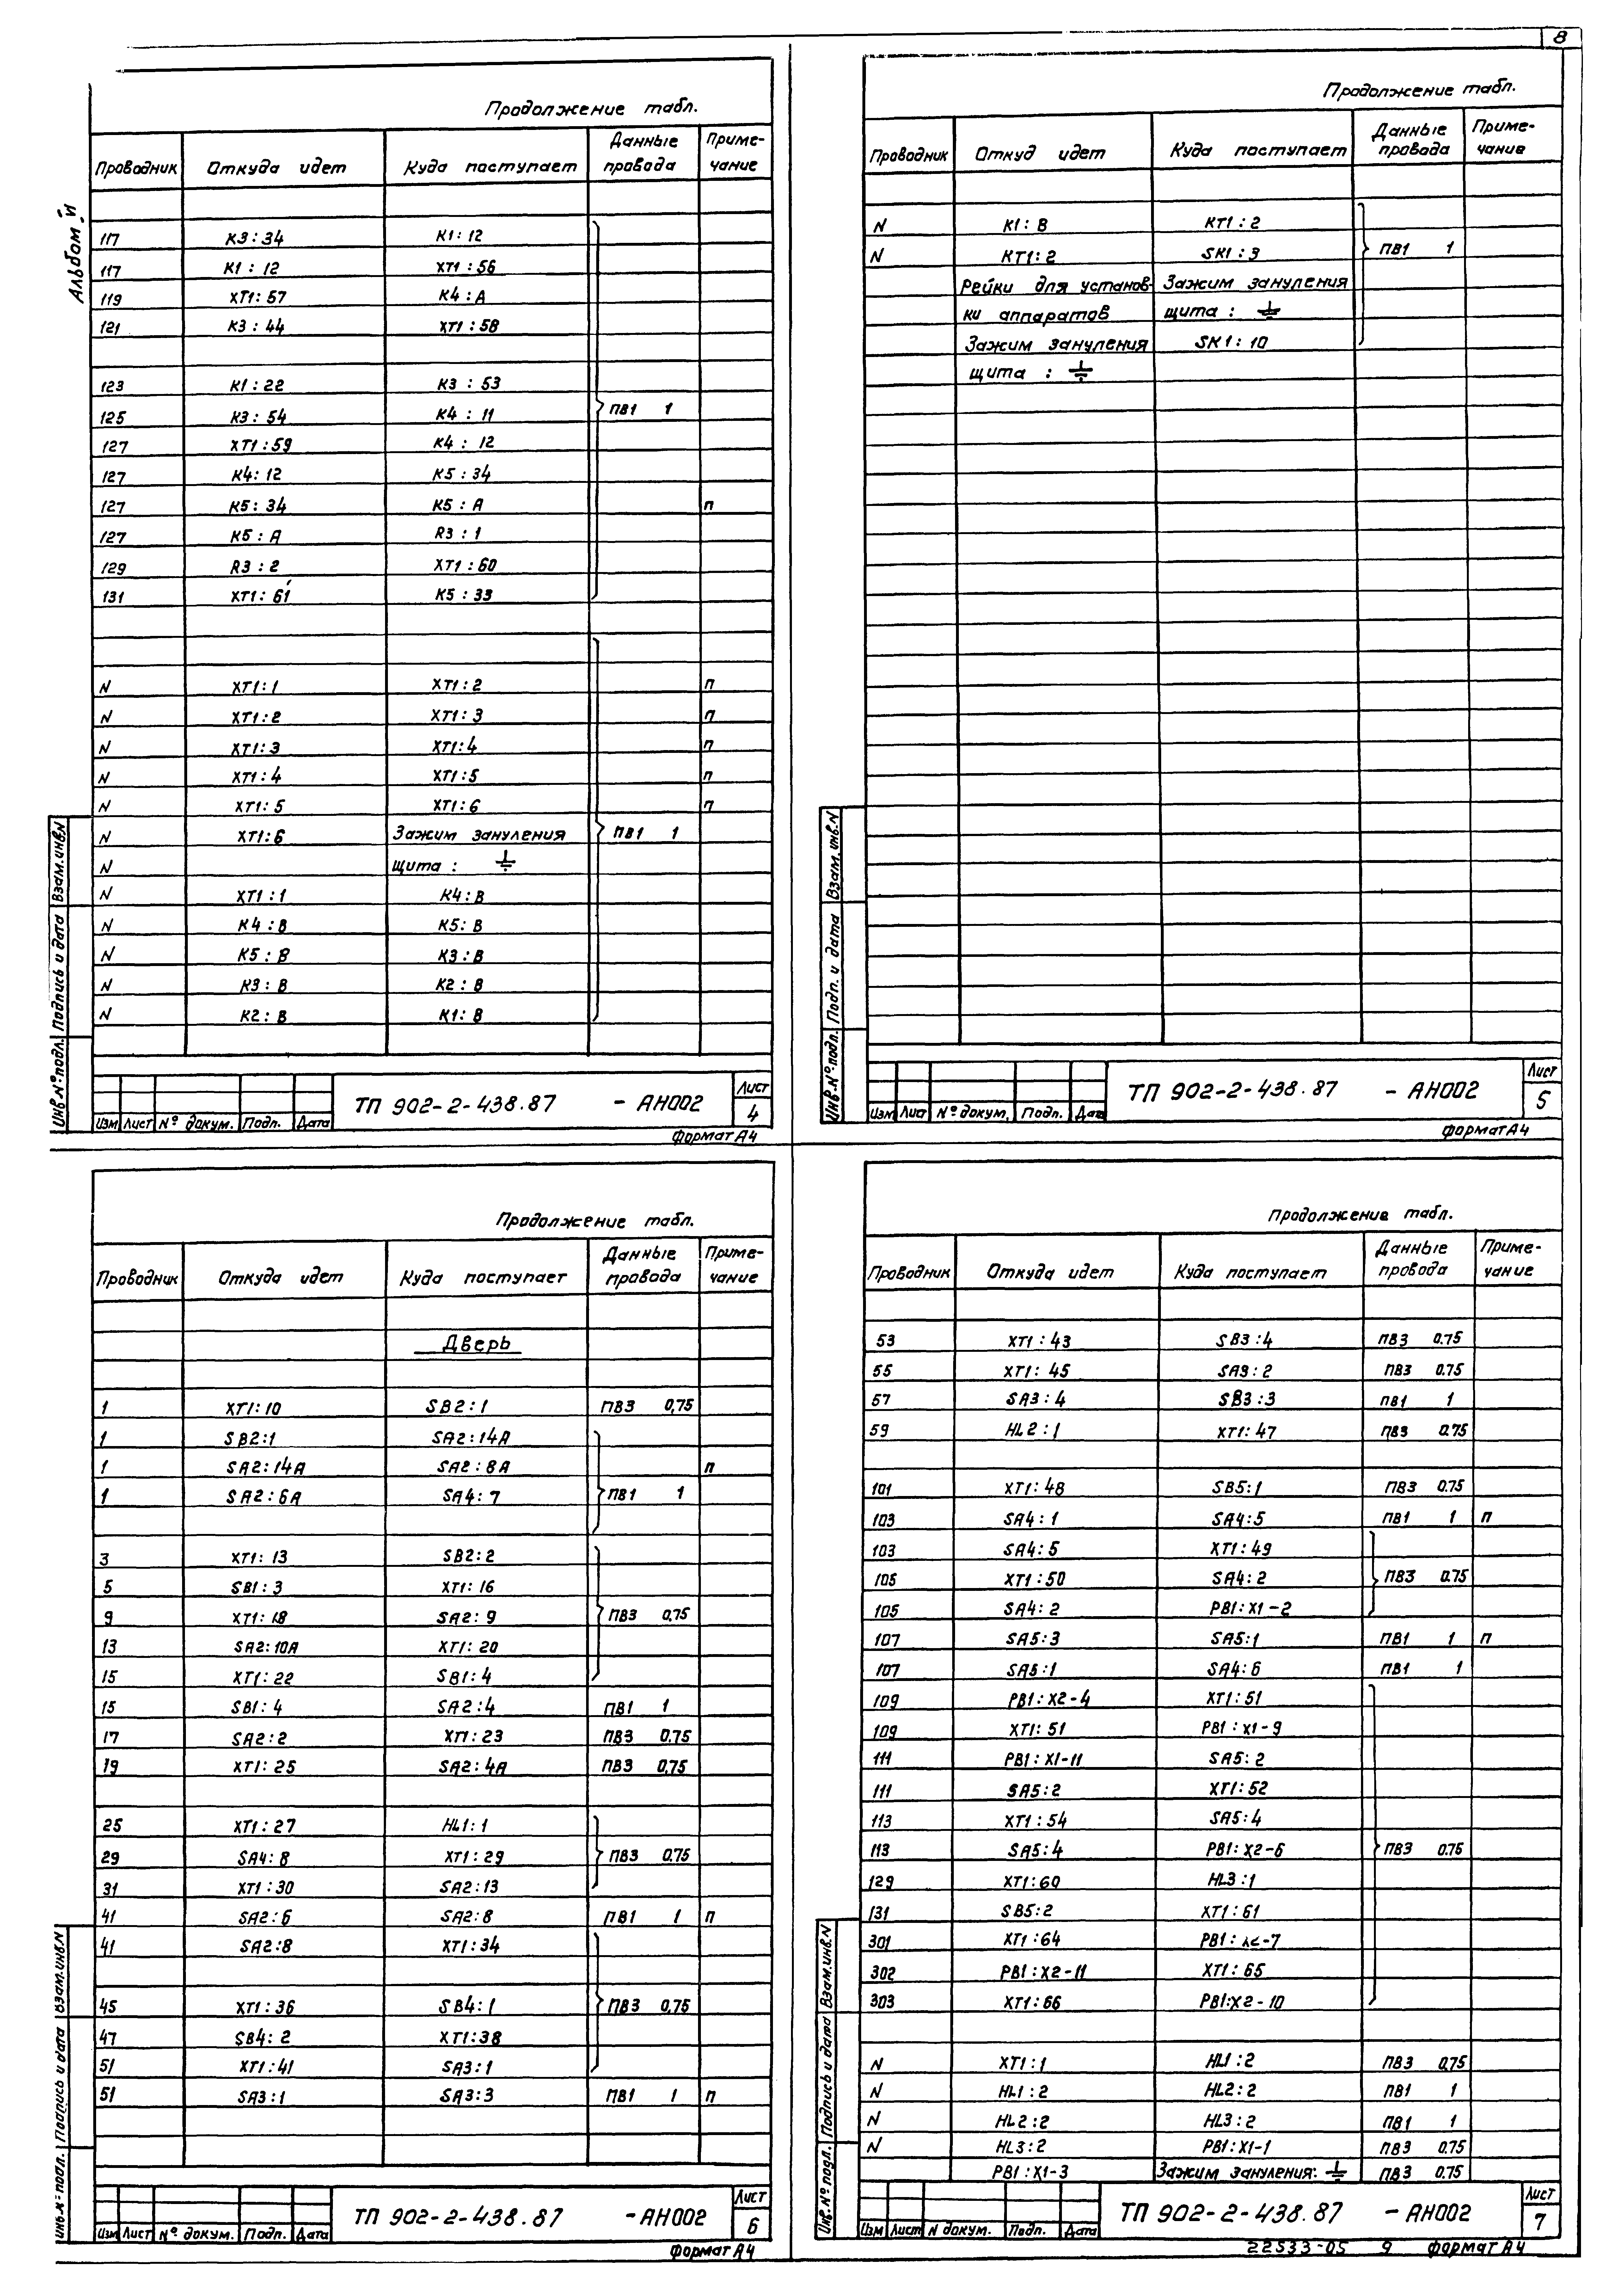 8
Альбом II
Продолжение табл.
Проводник Откуда идет Куда поступает Данные провода Примечание
117 К3:34 К1:12
117 К1:12 ХТ1:56
119 ХТ1:57 К4:А
121 К3:44 ХТ1:58
123 К1:22 К3:53
125 К3:54 К4:11 ПВ1 1
127 ХТ1:59 К4:12
127 К4:12 К5:34
127 К5:34 К5:А п
127 К5:А R3:1
129 R3:2 ХТ1:60
131 ХТ1:61 К5:33
N ХТ1:1 ХТ1:2 п
N ХТ1:2 ХТ1:3 п
N ХТ1:3 ХТ1:4 п
N ХТ1:4 ХТ1:5 п
N ХТ1:5 ХТ1:6 п
N ХТ1:6 Зажим зануления ПВ1 1
N щита: ⏚
N ХТ1:1 К4:В
N К4:В К5:В
N К5:В К3:В
N К3:В К2:В
N К2:В К1:В
Инв.№ подл. Подпись и дата Взам.инв.N
Изм Лист № докум. Подп. Дата
ТП 902-2-438.87 -АН002
Лист
4
Формат А4
Продолжение табл.
Проводник Откуд идет Куда поступает Данные провода Примечание
N К1:В КТ1:2
N КТ1:2 SК1:3 ПВ1 1
Рейки для установ- Зажим зануления
ки аппаратов щита: ⏚
Зажим зануления SК1:10
щита: ⏚
Инв.№ подл. Подп. и дата Взам.инв.N
Изм Лист № докум. Подп. Дата
ТП 902-2-438.87 -АН002
Лист
5
Формат А4
Продолжение табл.
Проводник Откуда идет Куда поступает Данные провода Примечание
Дверь
1 ХТ1:10 SB2:1 ПВ3 0,75
1 SB2:1 SA2:14А
1 SA2:14А SA2:8А п
1 SA2:6А SA4:7 ПВ1 1
3 ХТ1:13 SB2:2
5 SB1:3 ХТ1:16
9 ХТ1:18 SA2:9 ПВ3 0,75
13 SA2:10А ХТ1:20
15 ХТ1:22 SB1:4
15 SB1:4 SA2:4 ПВ1 1
17 SA2:2 ХТ1:23 ПВ3 0.75
19 ХТ1:25 SA2:4А ПВ3 0,75
25 ХТ1:27 HL1:1
29 SA4:8 ХТ1:29 ПВ3 0.75
31 ХТ1:30 SA2:13
41 SA2:6 SA2:8 ПВ1 1 п
41 SA2:8 ХТ1:34
45 ХТ1:36 SB4:1 ПВ3 0,75
47 SB4:2 ХТ1:38
51 ХТ1:41 SA3:1
51 SA3:1 SA3:3 ПВ1 1 п
Инв.№ подл. Подпись и дата Взам.инв.N
Изм Лист № докум. Подп. Дата
ТП 902-2-438.87 -АН002
Лист
6
Формат А4
Продолжение табл.
Проводник Откуда идет Куда поступает Данные провода Примечание
53 ХТ1:43 SB3:4 ПВ3 0.75
55 ХТ1:45 SA3:2 ПВ3 0.75
57 SA3:4 SB3:3 ПВ1 1
59 HL2:1 ХТ1:47 ПВ3 0.75
101 ХТ1:48 SB5:1 ПВ3 0.75
103 SA4:1 SA4:5 ПВ1 1 п
103 SA4:5 ХТ1:49
105 ХТ1:50 SA4:2 ПВ3 0.75
105 SA4:2 РВ1:Х1-2
107 SA5:3 SA5:1 ПВ1 1 п
107 SA5:1 SA4:6 ПВ1 1
109 РВ1:Х2-4 ХТ1:51
109 ХТ1:51 РВ1:Х1-9
111 РВ1:Х1-11 SA5:2
111 SA5:2 ХТ1:52
113 ХТ1:54 SA5:4
113 SA5:4 РВ1:Х2-6 ПВ3 0.75
129 ХТ1:60 HL3:1
131 SB5:2 ХТ1:61
301 ХТ1:64 РВ1: -7
302 РВ1:Х2-11 ХТ1:65
303 ХТ1:66 РВ1:Х2-10
N ХТ1:1 HL1:2 ПВ3 0,75
N HL1:2 HL2:2 ПВ1 1
N HL2:2 HL3:2 ПВ1 1
N HL3:2 РВ1:Х1-1 ПВ3 0.75
РВ1:Х1-3 Зажим зануления: ⏚ ПВ3 0.75
Инв.№ подл. Подпись и дата Взам.инв.N
Изм Лист N докум. Подп. Дата
ТП 902-2-438.87 -АН002
Лист
7
22533-05 9 Формат А4